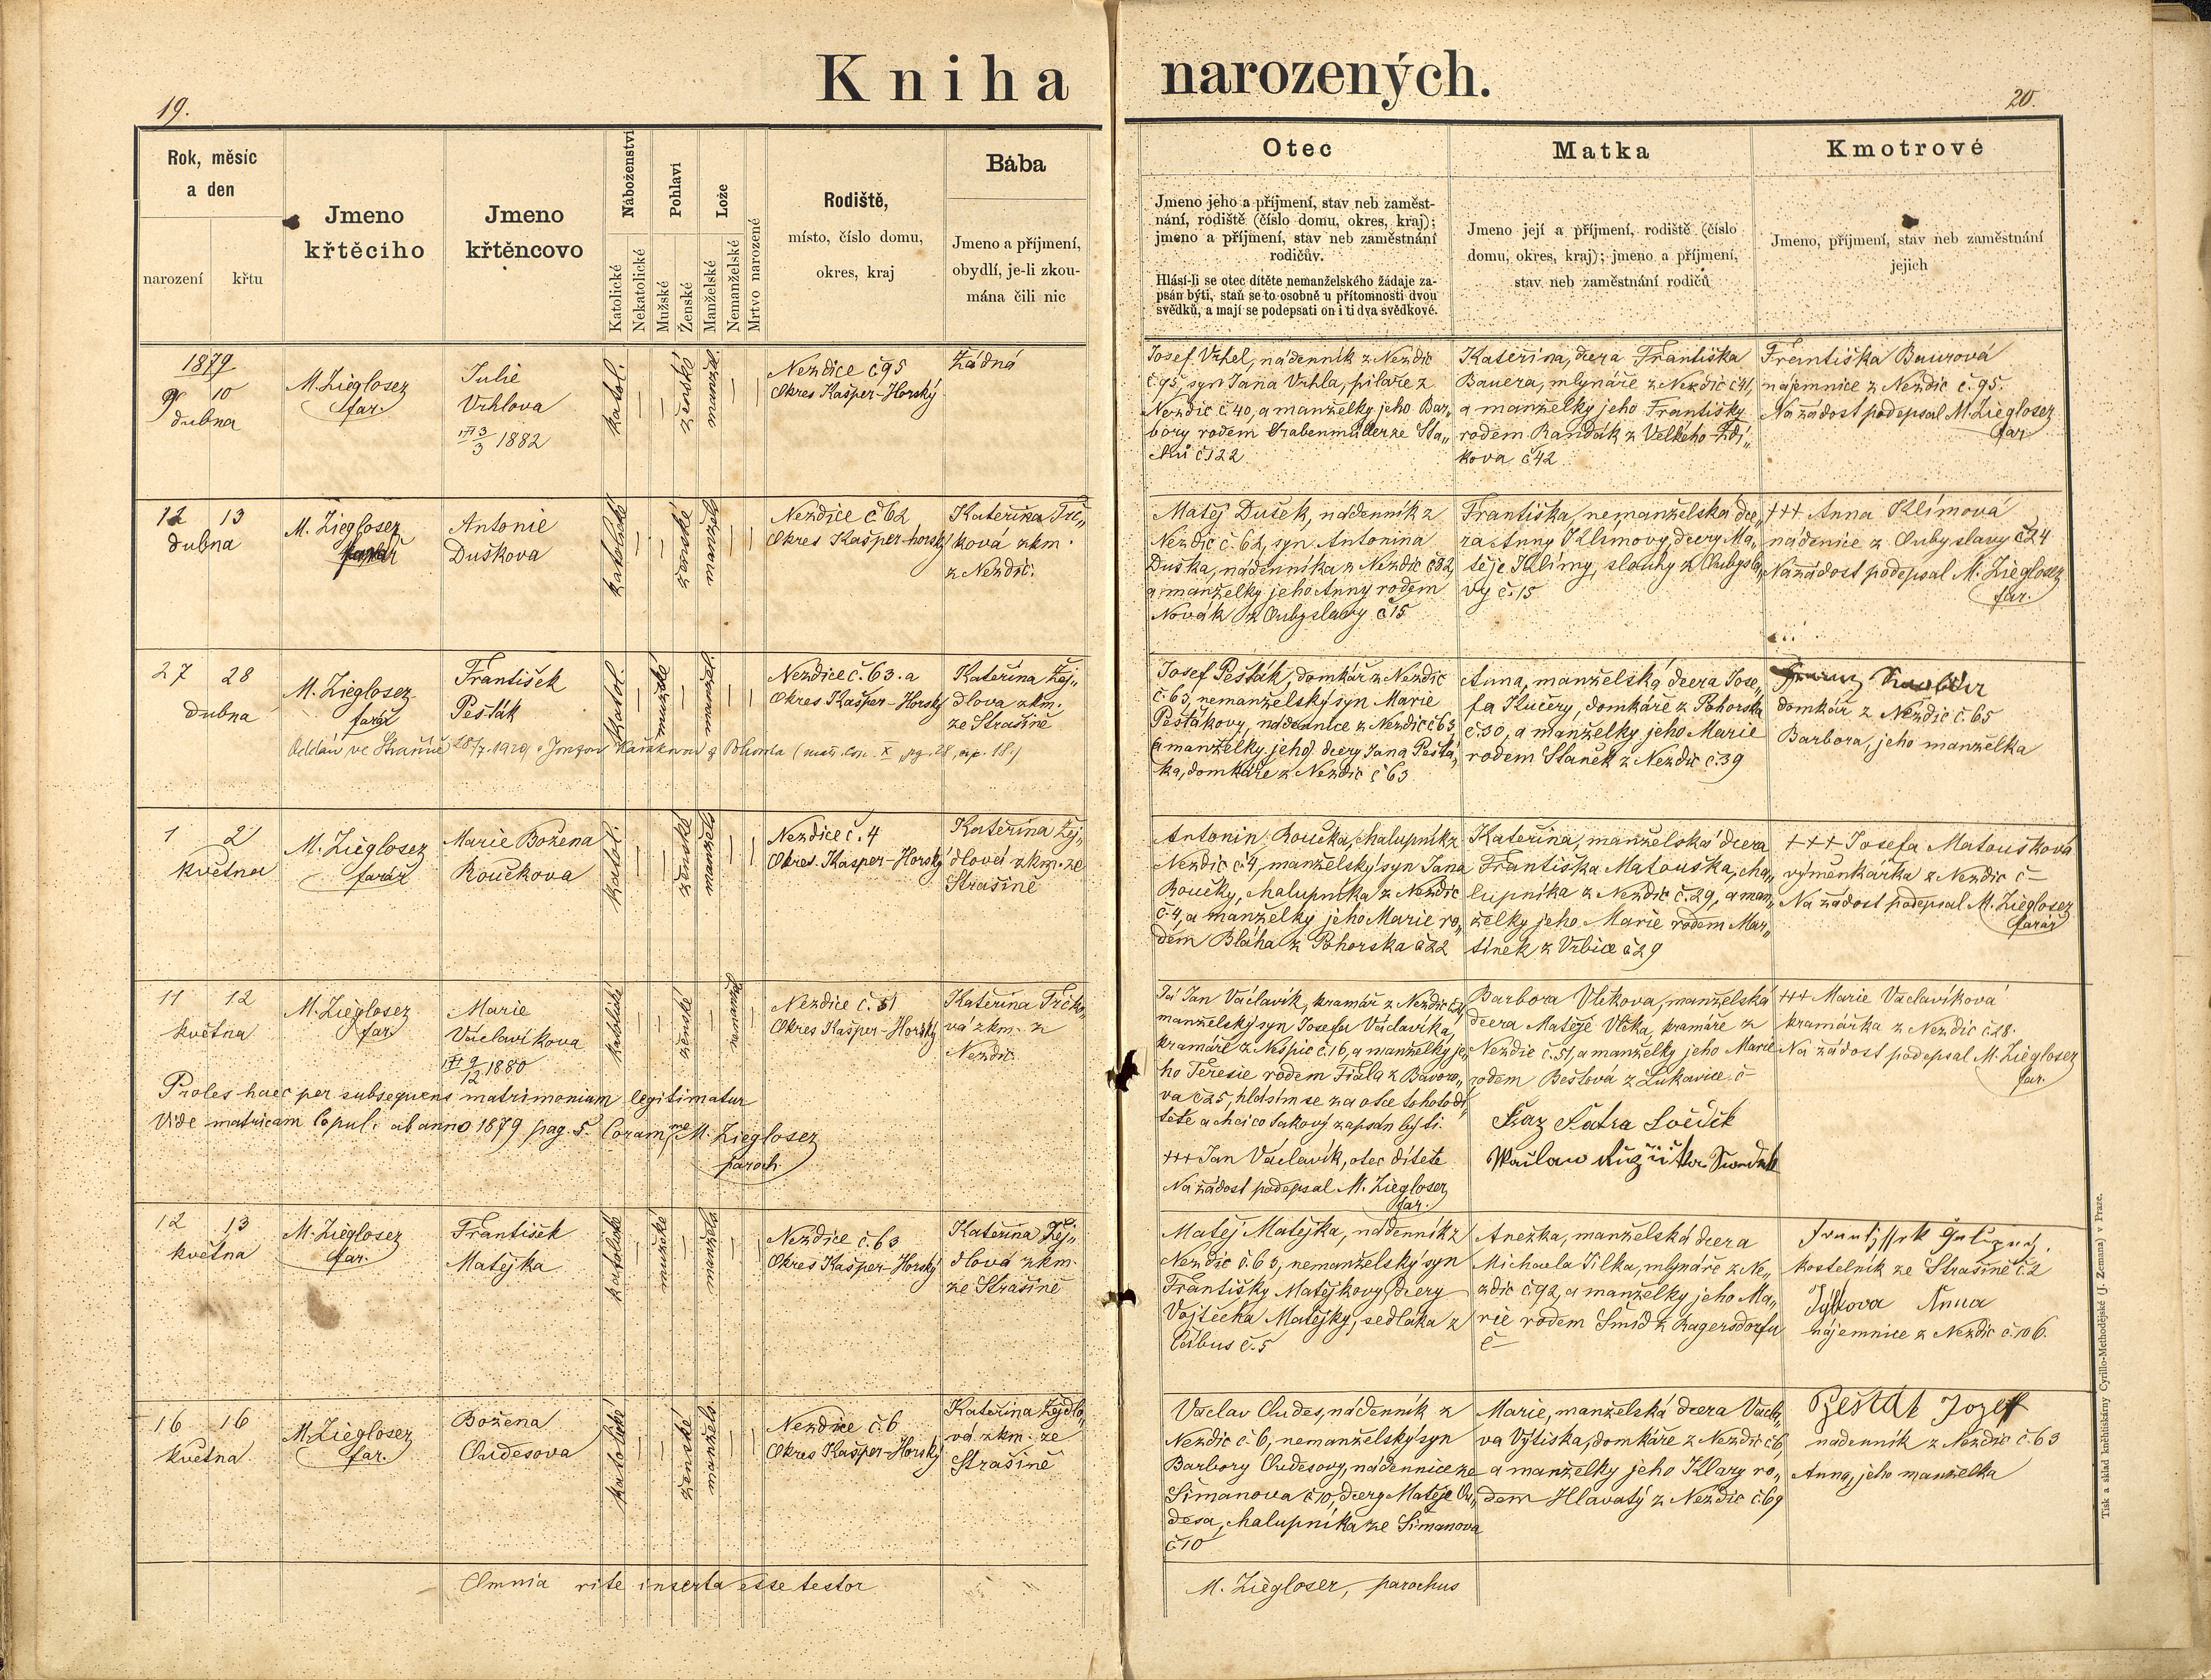 Kniha narozených.
19.
20.
Rok, měsíc
a den
narození
křtu
Jmeno
křtěciho
Jmeno
křtěncovo
Náboženství
Katolické
Nekatolické
Pohlaví
Mužské
Ženské
Lože
Manželské
Nemanželské
Mrtvo narozené
Rodiště,
místo, číslo domu,
okres, kraj
Bába
Jmeno a příjmení,
obydlí, je-li zkou-
mána čili nic
Otec
Jmeno jeho a příjmení, stav neb zaměst-
nání, rodiště (číslo domu, okres, kraj);
jmeno a příjmení, stav neb zaměstnání
rodičův.
Hlásí-li se otec dítěte nemanželského žádaje za-
psán býti, staň se to osobně u přítomnosti dvou
svědků, a mají se podepsati on i ti dva svědkové.
Matka
Jmeno její a příjmení, rodiště (číslo
domu, okres, kraj); jmeno a příjmení,
stav neb zaměstnání rodičů
Kmotrové
Jmeno, příjmení, stav neb zaměstnání
jejich
1879
9 10
dubna
M. Ziegloser
far.
Julie
Vrhlova
††† 3/3 1882
katol.
ženské
Nezdice č 95
Okres Kašper-Horský
Žádná
Josef Vrhel, nádenník z Nezdic
č 95, syn Jana Vrhla, pilaře z
Nezdic č 40, a manželky jeho Bar„
bory rodem Grabenmüller ze Sta„
č 122
Kateřina, dcera Františka
Bauera, mlynáře z Nezdic č 41,
a manželky jeho Františky
rodem Randák z Velkého Zdí„
kova č 42
Františka Baurová
nájemnice z Nezdic č. 95.
Na žádost podepsal M. Ziegloser
far.
12 13
dubna
M. Ziegloser
farář
Antonie
Duškova
katolické
ženské
Nezdice č 62
Okres Kašper-horský
Kateřina Trč„
ková zkm.
z Nezdic.
Matěj Dušek, nádenník z
Nezdic č. 62, syn Antonína
Duška, nádenníka z Nezdic č 82,
a manželky jeho Anny rodem
Novák z Ouby slavy č 15
Františka, nemanželská dce„
ra Anny Klímovy, dcery Ma„
těje Klímy, slouhy z Oubysla„
vy č. 15
††† Anna Klímová
nádenice z Oubyslavy č 24
Na žádost podepsal M. Ziegloser
far.
27 28
dubna
M. Ziegloser
farář
František
Pešták
katol.
mužské
Nezdice č. 63. a
Okres Kašper-Horský
Kateřina Žej„
dlova zkm.
ze Strašíně
Josef Pešták, domkář z Nezdic
č. 63, nemanželský syn Marie
Peštákovy, nádennice z Nezdic č 63,
a manželky jeho dcery Jana Peštá„
ka, domkáře z Nezdic č 63
Anna, manželská dcera Jose„
fa Kučery, domkáře z Pohorska
č. 30, a manželky jeho Marie
rodem Staněk z Nezdic č. 39
domkář z Nezdic č. 65
Barbora, jeho manželka
Oddán ve Strašíně 28/7. 1929
1 2
května
M. Ziegloser
farář
Marie Božena
Roučkova
katol.
ženské
Nezdice č. 4
Okres Kašper-Horský
Kateřina Žej„
dlová zkm. ze
Strašíně
Antonín Roučka, chalupník z
Nezdic č 4, manželský syn Jana
Roučky, chalupníka z Nezdic
č. 4, a manželky jeho Marie ro„
dem Bláha z Pohorska č 22
Kateřina, manželská dcera
Františka Matouška, cha„
lupníka z Nezdic č. 29, a man„
želky jeho Marie rodem Mar„
tínek z Vrbice č 29
††† Josefa Matoušková
výměnkářka z Nezdic č –
Na žádost podepsal M. Ziegloser
farář
11 12
května
M. Ziegloser
far.
Marie
Václavíkova
††† 9/12 1880
katolické
ženské
Nezdice č. 51
Okres Kašper-Horský
Kateřina Trčko„
vá zkm. z
Nezdic.
Proles haec per subsequens matrimonium legitimatur
Vide matricam Copul. ab anno 1879 pag. 5. Coram me M. Ziegloser
paroch.
Já Jan Václavík, kramář z Nezdic
manželský syn Josefa Václavíka,
kramáře z Nespic č. 16, a manželky je„
ho Teresie rodem Fiala z Bavoro„
va č 25, hlásím se za otce tohoto dí„
těte a chci co takový zapsán býti.
††† Jan Václavík, otec dítěte
Na žádost podepsal M. Ziegloser
far.
Barbora Vlkova, manželská
dcera Matěje Vlka, kramáře z
Nezdic č. 51, a manželky jeho Marie
rodem Beštová z Lukavice č –
††† Marie Václavíková
kramářka z Nezdic č 28.
Na žádost podepsal M. Ziegloser
far.
12 13
května
M. Ziegloser
far.
František
Matějka
katolické
mužské
Nezdice č. 63
Okres Kašper-Horský
Kateřina Žej„
dlová zkm.
ze Strašíně
Matěj Matějka, nádenník z
Nezdic č. 63, nemanželský syn
Františky Matějkovy, dcery
Vojtěcha Matějky, sedláka z
č. 5
Anežka, manželská dcera
Michaela Tilka, mlynáře z Ne„
zdic č. 92, a manželky jeho Ma„
rie rodem Šmíd z Ragersdorfu
č –
kostelník ze Strašíně č. 2
Anna
nájemnice z Nezdic č. 106.
16 16
května
M. Ziegloser
far.
Božena
Chudesova
katolické
ženské
Nezdice č. 6
Okres Kašper-Horský
Kateřina Žejdlo„
vá zkm. ze
Strašíně
Václav Chudes, nádenník z
Nezdic č 6, nemanželský syn
Barbory Chudesovy, nádennice ze
Šimanova č 10, dcery Matěje Chu„
desa, chalupníka ze Šimanova
č 10
Marie, manželská dcera Václa„
va Výtiska, domkáře z Nezdic č 6,
a manželky jeho Klary ro„
dem Hlavatý z Nezdic č. 69
Peštak Jozef
nádenník z Nezdic č. 63
Anna, jeho manželka
Omnia rite inserta esse testor
M. Ziegloser, parochus
Tisk a sklad knihtiskárny Cyrillo-Methodějské (J. Zemana) v Praze.